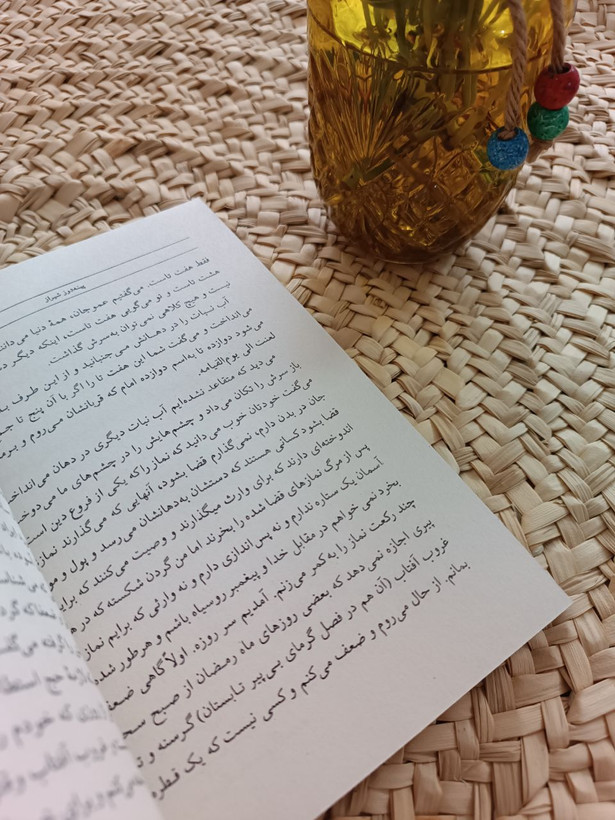 پینه‌دوز شیراز
فقط هفت تاست. می‌گفتیم عموجان، همهٔ دنیا می‌دانند
هشت تاست و تو می‌گویی هفت تاست، اینکه دیگر
نیست و هیچ کلاهی نمی‌توان به‌سرش گذاشت.
آب نبات را در دهانش می‌جنبانید و از این طرف به
می‌انداخت و می‌گفت شما این هفت تا را اگر با آن پنج تا
می‌شود دوازده تا به‌اسم دوازده امام که قربانشان می‌روم و
لعنت الی یوم‌القیامه.
می‌دید که متقاعد نشده‌ایم آب نبات دیگری در دهان می‌انداخت
باز سرش را تکان می‌داد و چشم‌هایش را در چشم‌های ما می‌دوخت
می‌گفت خودتان خوب می‌دانید که نماز را که یکی از فروع دین است
جان در بدن دارم، نمی‌گذارم قضا بشود، آنهایی که می‌گذارند نماز
قضا بشود کسانی هستند که دستشان به‌دهانشان می‌رسد و پول و
اندوخته‌ای دارند که برای وارث میگذارند و وصیت می‌کنند که
پس از مرگ نمازهای قضا شده را بخرند اما من گردن شکسته که در
آسمان یک ستاره ندارم و نه پس اندازی دارم و نه وارثی که برایم نماز
بخرد نمی خواهم در مقابل خدا و پیغمبر روسیاه باشم و هرطور شده
چند رکعت نماز را به کمر می‌زنم. آمدیم سر روزه. اولاً گاهی
پیری اجازه نمی دهد که بعضی روزهای ماه رمضان از صبح
غروب آفتاب (آن هم در فصل گرمای بی‌پیر تابستان) گرسنه و
بمانم. از حال می‌روم و ضعف می‌کنم و کسی نیست که یک قطره